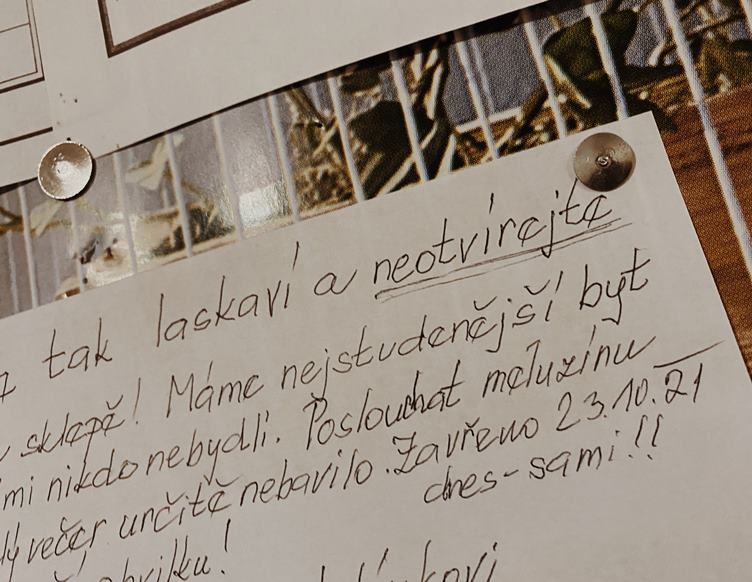 tak laskaví a neotvírejte
sklepě! Máme nejstudenější byt
mi nikdo nebydlí. Poslouchat meluzínu
večer určitě nebavilo. Zavřeno 23.10.21
dnes - sami!!